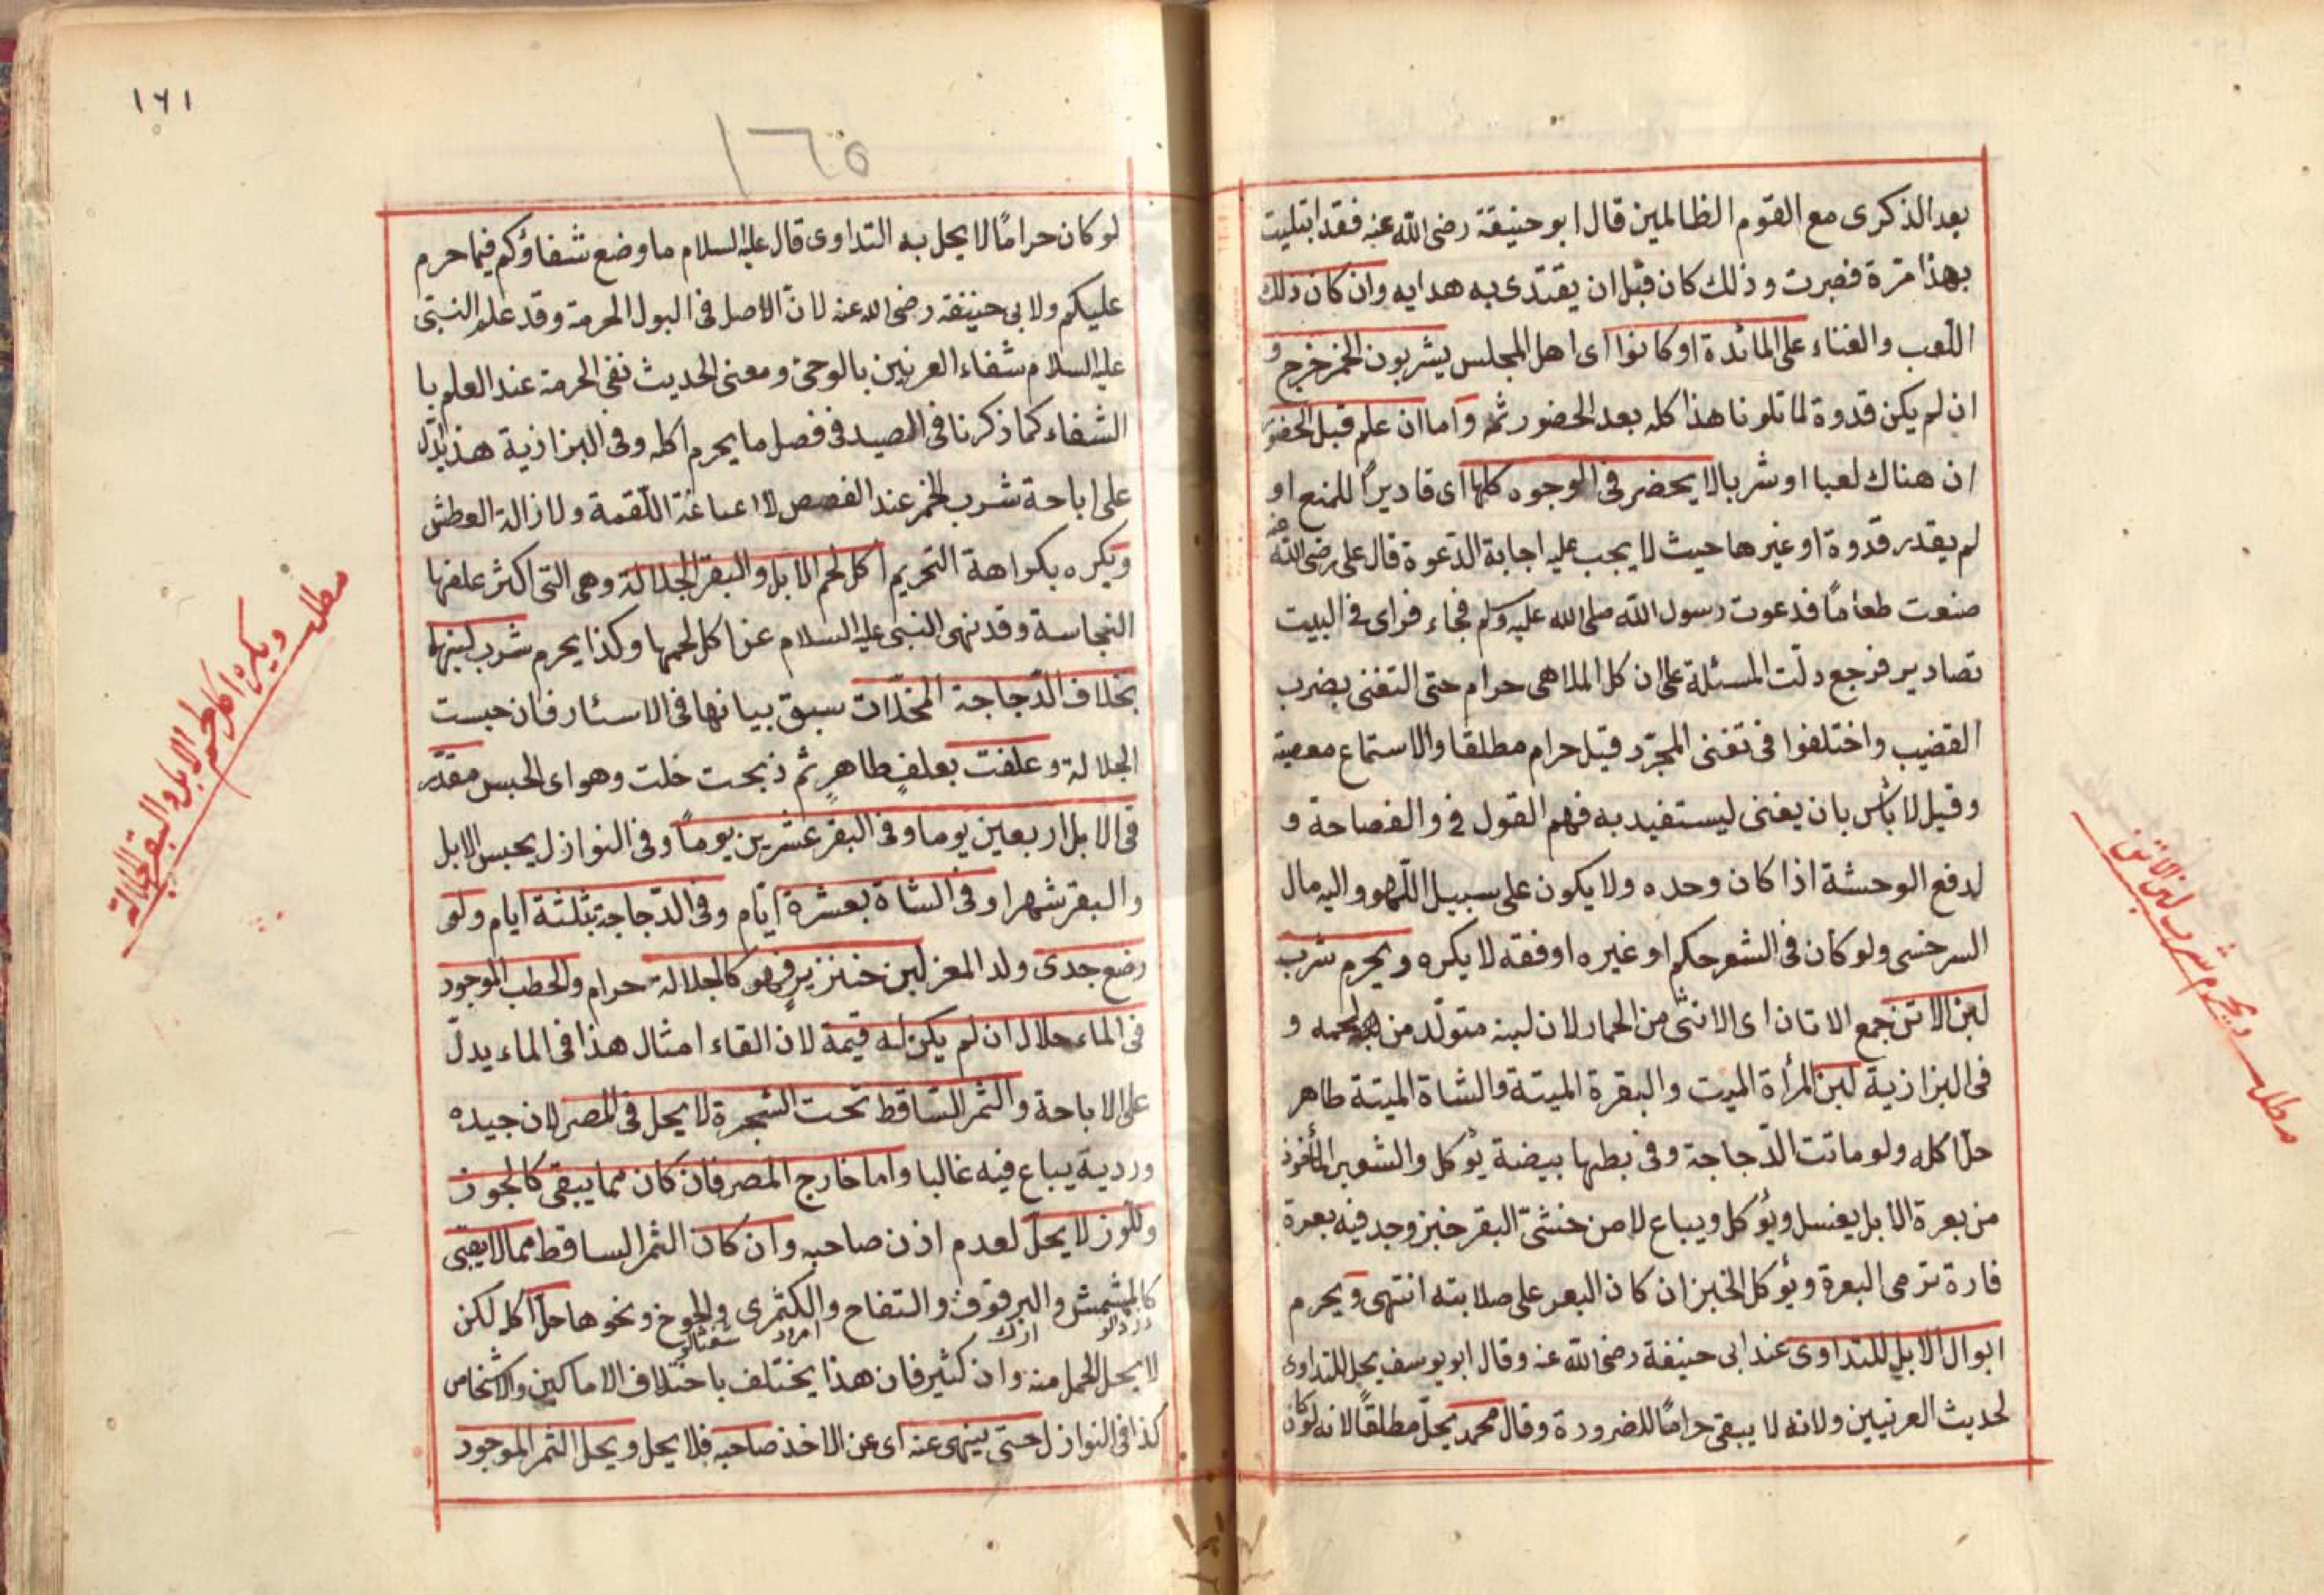 بعد الذكرى مع القوم الظالمين قال ابو حنيفة رضى الله عنه فقد ابتليت
بهذا مرة فصبرت وذلك كان قبل ان يقتدى به هدايه وان كان ذلك
اللعب والغناء على المائدة او كانوا اى اهل المجلس يشربون الخمر خرج و
ان لم يكن قدوة لما تلونا هذا كله بعد الحضور ثمه واما ان علم قبل الحضور
ان هناك لعبا او شربا لا يحضر فى الوجوه كلها اى قاديرا للمنع او
لم يقدر قدوة او غيرها حيث لا يجب عليه اجابة الدعوة قال على رضى الله عنه
صنعت طعاما فدعوت رسول الله صلى الله عليه وسلم فجاء فراى فى البيت
تصادير فرجع دلت المسئلة على ان كل الملاهى حرام حتى التغنى بضرب
القضيب واختلفوا فى تغنى المجرّد قيل حرام مطلقا والاستماع معصية
وقيل لا بأس بان يغنى ليستفيد به فهم القول فى والفصاحة و
لدفع الوحشة اذا كان وحده ولا يكون على سبيل اللهو واليه مال
السرخسى ولو كان فى الشعر حكم او غيره او فقه لا يكره ويحرم شرب
لبن الاتن جمع الاتان اى الانثى من الحمار لان لبنه متولّد من لحمه و
فى البزازية لبن المرأة الميت والبقرة الميتة والشاة الميتة طاهر
حل اكله ولو ماتت الدّجاجة وفى بطنها بيضة يؤكل والشعير المأخوذ
من بعرة الابل يغسل ويؤكل ويباع لا من خنثىّ البقر خبز وجد فيه بعرة
فارة ترمى البعرة ويؤكل الخبز ان كان البعر على صلابته انتهى ويحرم
ابوال الابل للتداوى عند ابى حنيفة رضى الله عنه وقال ابو يوسف يحل للتداوى
لحديث العرنيين ولانه لا يبقى حراما للضرورة وقال محمد يحلّ مطلقا لانه لو كان
مطلب ويحرم شرب لبن الاتن
١٦١
١٦٥
لو كان حراما لا يحل به التداوى قال عليه السلام ما وضع شفاؤكم فيما حرم
عليكم ولابى حنيفة رضى الله عنه لانّ الاصل فى البول الحرمة وقد علم النبىّ
عليه السلام شفاء العرنيين بالوحى ومعنى الحديث نفى الحرمة عند العلم با
الشفاء كما ذكرنا فى الصيد فى فصل ما يحرم اكله وفى البزازية هذا يدّل
على اباحة شرب الخمر عند الغصص لااعساغة اللّقمة ولازالة العطش
ويكره بكراهة التحريم اكل لحم الابل والبقر الجلالة وهى التى اكثر علفها
النجاسة وقد نهى النبى عليه السلام عن اكل لحمها وكذا يحرم شرب لبنها
بخلاف الدّجاجة المخلّات سبق بيانها فى الاسئار فان حبست
الجلالة وعلفت بعلفٍ طاهرٍ ثم ذبحت حلت وهو اى الحبس مقدّر
فى الابل اربعين يوما وفى البقر عشرين يوماً وفى النوازل يحبس الابل
والبقر شهرا وفى الشاة بعشرة ايّام وفى الدّجاجة بثلثة ايام ولو
رضع جدى ولد المعز لبن خنزيرٍ فهو كالجلالة حرام والحطب الموجود
فى الماء حلال ان لم يكن له قيمة لان القاء امثال هذا فى الماء يدلّ
على الاباحة والثمر السّاقط تحت الشجرة لا يحل فى المصر لان جيده
ورديه يباع فيه غالبا واما خارج المصر فان كان مما يبقى كالجوز
واللّوز لا يحلّ لعدم اذن صاحبه وان كان الثمر الساقط مما لا يبقى
كالمشمش والبرقوق والتفاح والكثمرى والخوخ ونحوها حلّ اكله لكن
زردالو ارك امرود شفتالو
لا يحل الحمل منه وان كثير فان هذا يختلف باختلاف الاماكين والاشخاص
كذا فى النوازل حتى ينهى عنه اى عن الاخذ صاحبه فلا يحل ويحل الثمر الموجود
مطلب ويكره اكل لحم الابل والبقر الجلالة